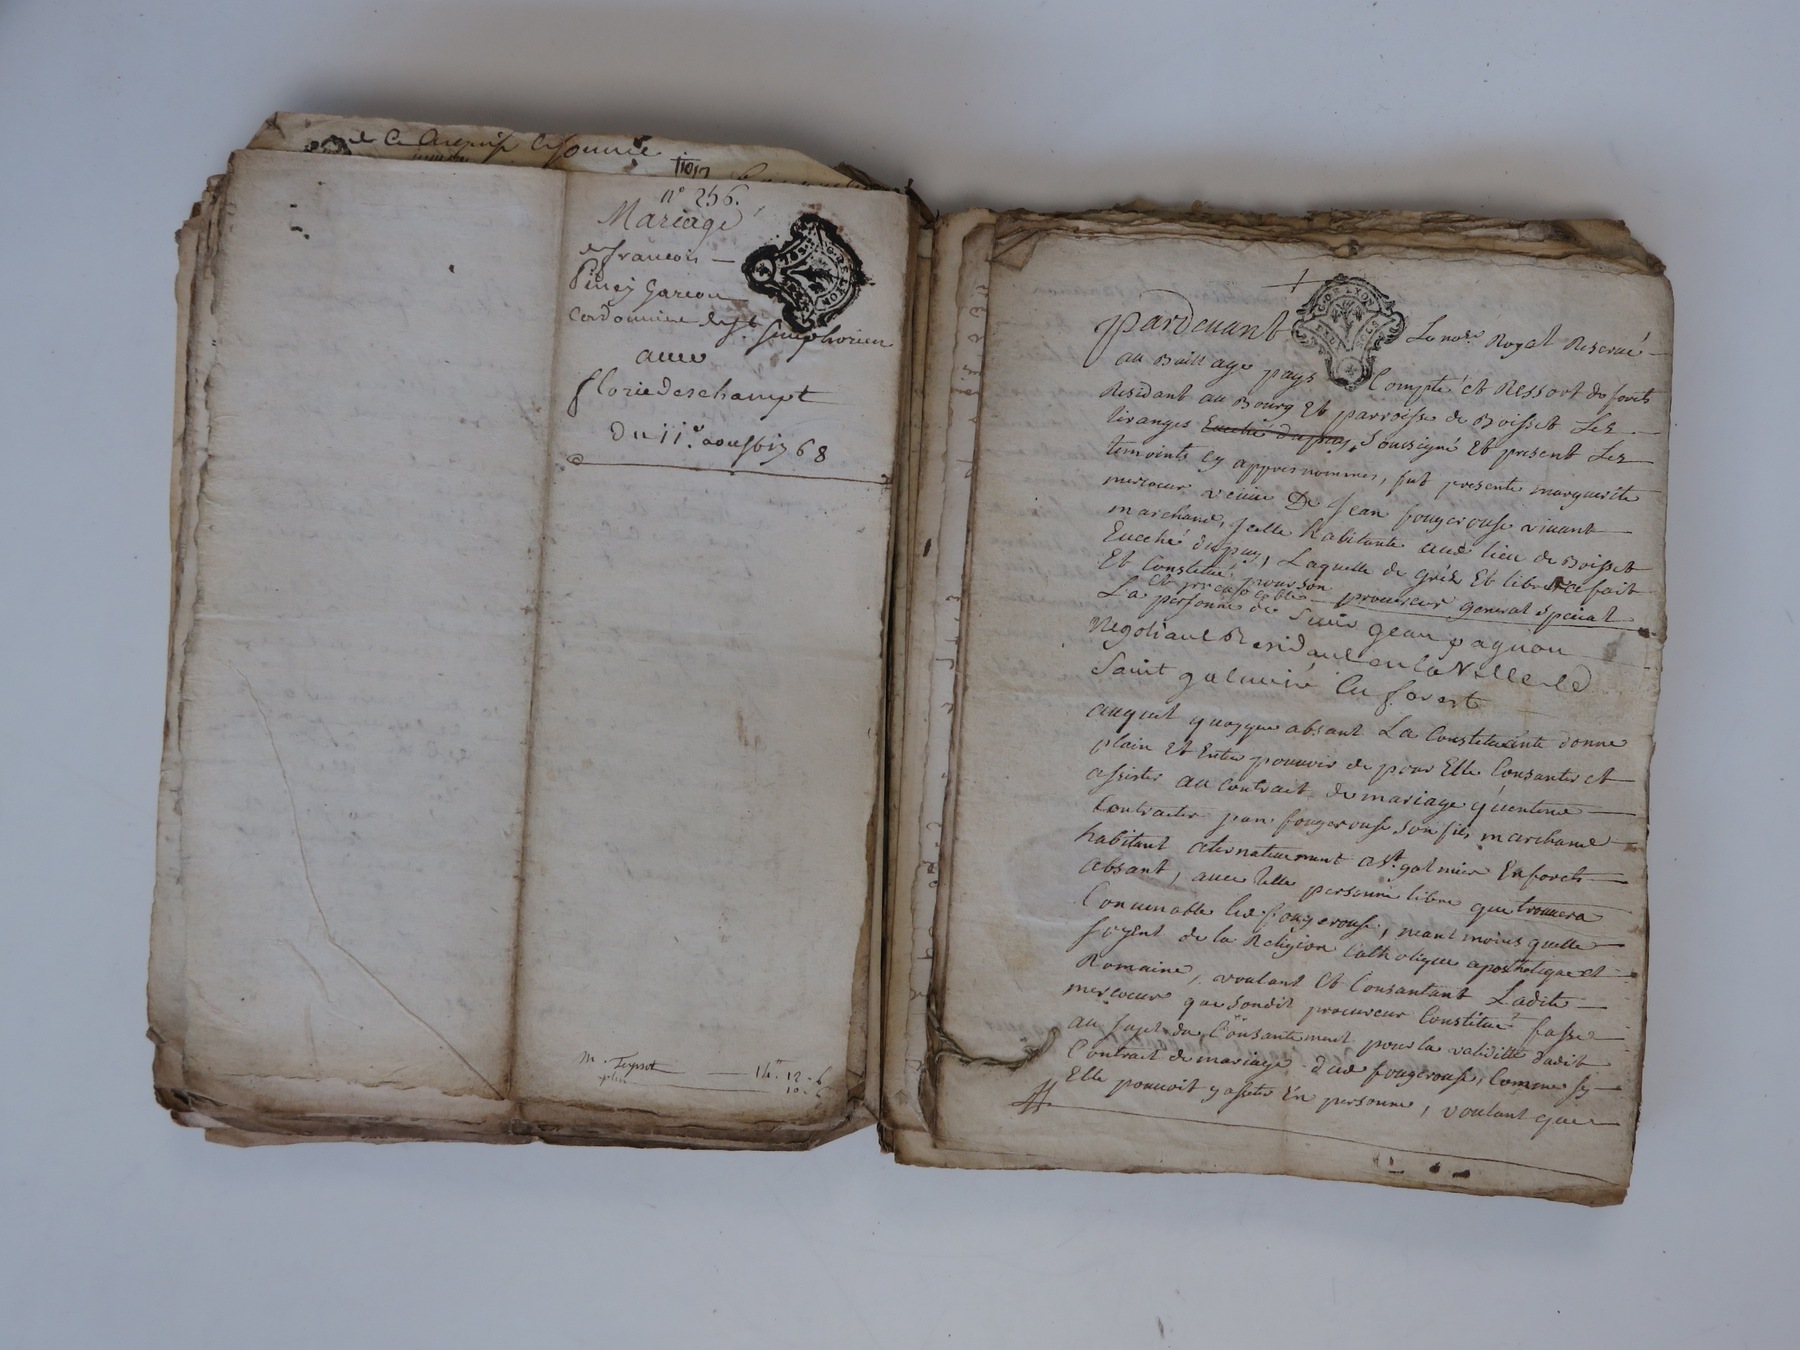 n° 256.
Mariage
de francois
piney Garcon
Cordonnier de st
simphorien
avec
florie deschampt
Du 11e. aoust 1768
m. Teyssot
14 - 12 - 6
10 - 6
G. DE LYON
pardevant Le nore. Royal Reservé
au Baillage pays Compté et Ressort de forets
Residant au Bourg Et parroisse de Boisset Lez
tiranges Eveché dupuy, soussigné Et present Lez
temoints cy appres nommes, fut presente marguerite
mercoeur veuve De jean fougerouse vivant
marchand, jcelle habitante aud lieu de Boisset
Eveché dupuy, Laquelle de gréd Et libre a fait
Et Constitué pour son procureur general spécial
Et jrrevocable
La personne de Sieur Jean pagnon
Negotiant Residant en la Ville de
Saint galmier En forest
auquel quoyque absant La Constituante donne
plain Et Entier pouvoir de pour Elle Consanter et
assister au Contrait de mariage qu'entend
Contracter jean fougerouse son fils marchand
habitant alternativement a St. galmier En forets
absant, avec telle personne libre que trouvera
Convenable led fougerouse, neant moins quelle
soyent de la Religion Catholique aposthotique et
Romaine, voulant Et Consantant Ladite
mercoeur que sondit procureur Constitué fasse
au sujet du Consantement pour la validitté dudit
Contrait de mariage dud fougerouse, Comme sy
Elle pouvoit y assister En personne, voulant que